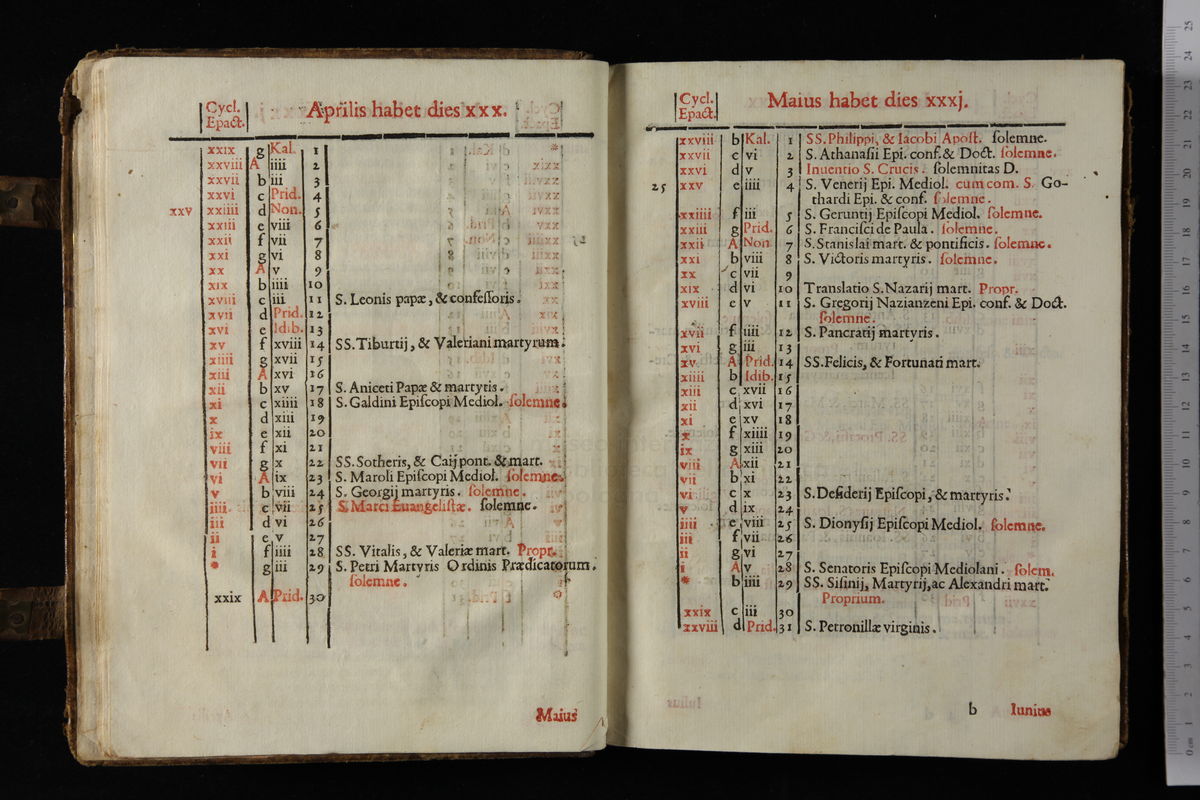 Cycl. Epact. Aprilis habet dies xxx.
xxix g Kal. 1
xxviii A iiii 2
xxvii b iii 3
xxvi c Prid. 4
xxv xxiiii d Non. 5
xxiii e viii 6
xxii f vii 7
xxi g vi 8
xx A v 9
xix b iiii 10
xviii c iii 11 S. Leonis papæ, & confeſſoris.
xvii d Prid. 12
xvi e Idib. 13
xv f xviii 14 SS. Tiburtij, & Valeriani martyrum.
xiiii g xvii 15
xiii A xvi 16
xii b xv 17 S. Aniceti Papæ & martyris.
xi c xiiii 18 S. Galdini Epiſcopi Mediol. ſolemne.
x d xiii 19
ix e xii 20
viii f xi 21
vii g x 22 SS. Sotheris, & Caij pont. & mart.
vi A ix 23 S. Maroli Epiſcopi Mediol. ſolemne.
v b viii 24 S. Georgij martyris. ſolemne.
iiii c vii 25 S. Marci Euangeliſtæ. ſolemne.
iii d vi 26
ii e v 27
i f iiii 28 SS. Vitalis, & Valeriæ mart. Propr.
* g iii 29 S. Petri Martyris Ordinis Prædicatorum.
ſolemne.
xxix A Prid. 30
Maius
Cycl. Epact. Maius habet dies xxxj.
xxviii b Kal. 1 SS. Philippi, & Iacobi Apoſt. ſolemne.
xxvii c vi 2 S. Athanaſii Epi. conf. & Doct. ſolemne.
xxvi d v 3 Inuentio S. Crucis. ſolemnitas D.
25 xxv e iiii 4 S. Venerij Epi. Mediol. cum com. S. Go-
thardi Epi. & conf. ſolemne.
xxiiii f iii 5 S. Geruntij Epiſcopi Mediol. ſolemne.
xxiii g Prid. 6 S. Franciſci de Paula. ſolemne.
xxii A Non 7 S. Stanislai mart. & pontificis. ſolemne.
xxi b viii 8 S. Victoris martyris. ſolemne.
xx c vii 9
xix d vi 10 Translatio S. Nazarij mart. Propr.
xviii e v 11 S. Gregorij Nazianzeni Epi. conf. & Doct.
ſolemne.
xvii f iiii 12 S. Pancratij martyris.
xvi g iii 13
xv A Prid. 14 SS. Felicis, & Fortunati mart.
xiiii b Idib. 15
xiii c xvii 16
xii d xvi 17
xi e xv 18
x f xiiii 19
ix g xiii 20
viii A xii 21
vii b xi 22
vi c x 23 S. Deſiderij Epiſcopi, & martyris.
v d ix 24
iiii e viii 25 S. Dionyſij Epiſcopi Mediol. ſolemne.
iii f vii 26
ii g vi 27
i A v 28 S. Senatoris Epiſcopi Mediolani. ſolem.
* b iiii 29 SS. Siſinij, Martyrij, ac Alexandri mart.
Proprium.
xxix c iii 30
xxviii d Prid. 31 S. Petronillæ virginis.
b Iunius